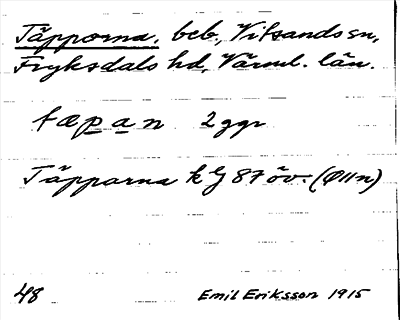 Täpporna. beb., Vitsands sn,
Fryksdals hd, Värml. län.
tæpan 2 ggr
Täpparna kG 87 öv. (Ø11n)
48 Emil Eriksson 1915